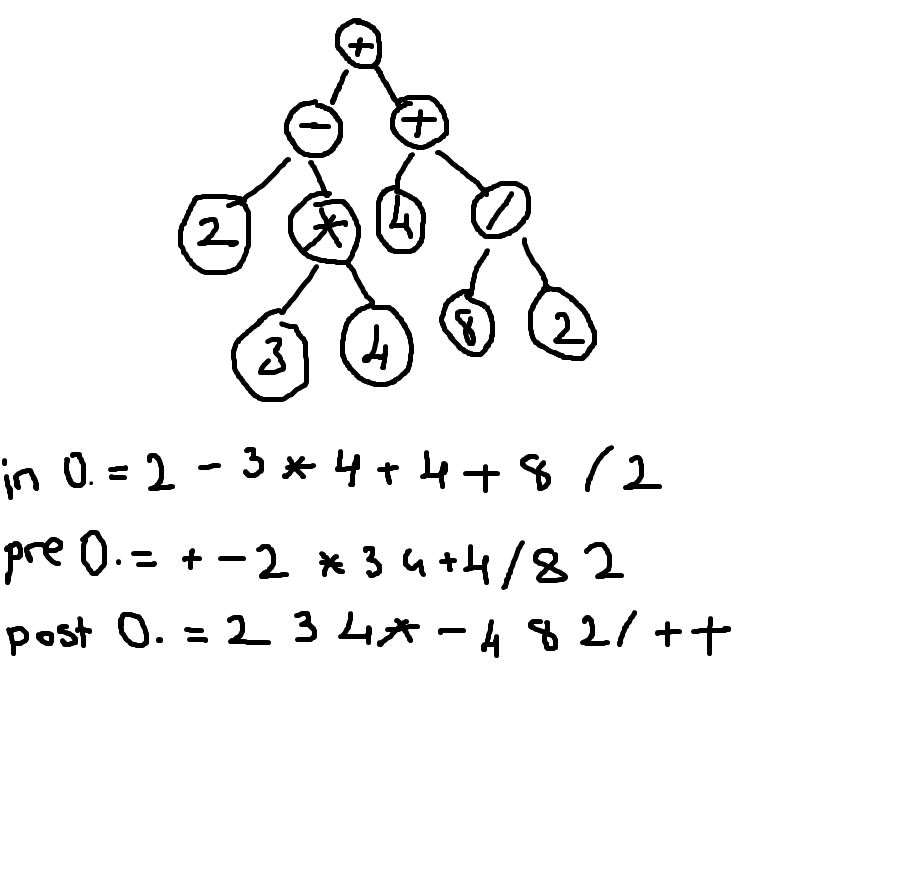 +
- +
2 * 4 /
3 4 8 2
in O. = 2 - 3 * 4 + 4 + 8 / 2
pre O. = + - 2 * 3 4 + 4 / 8 2
post O. = 2 3 4 * - 4 8 2 / + +